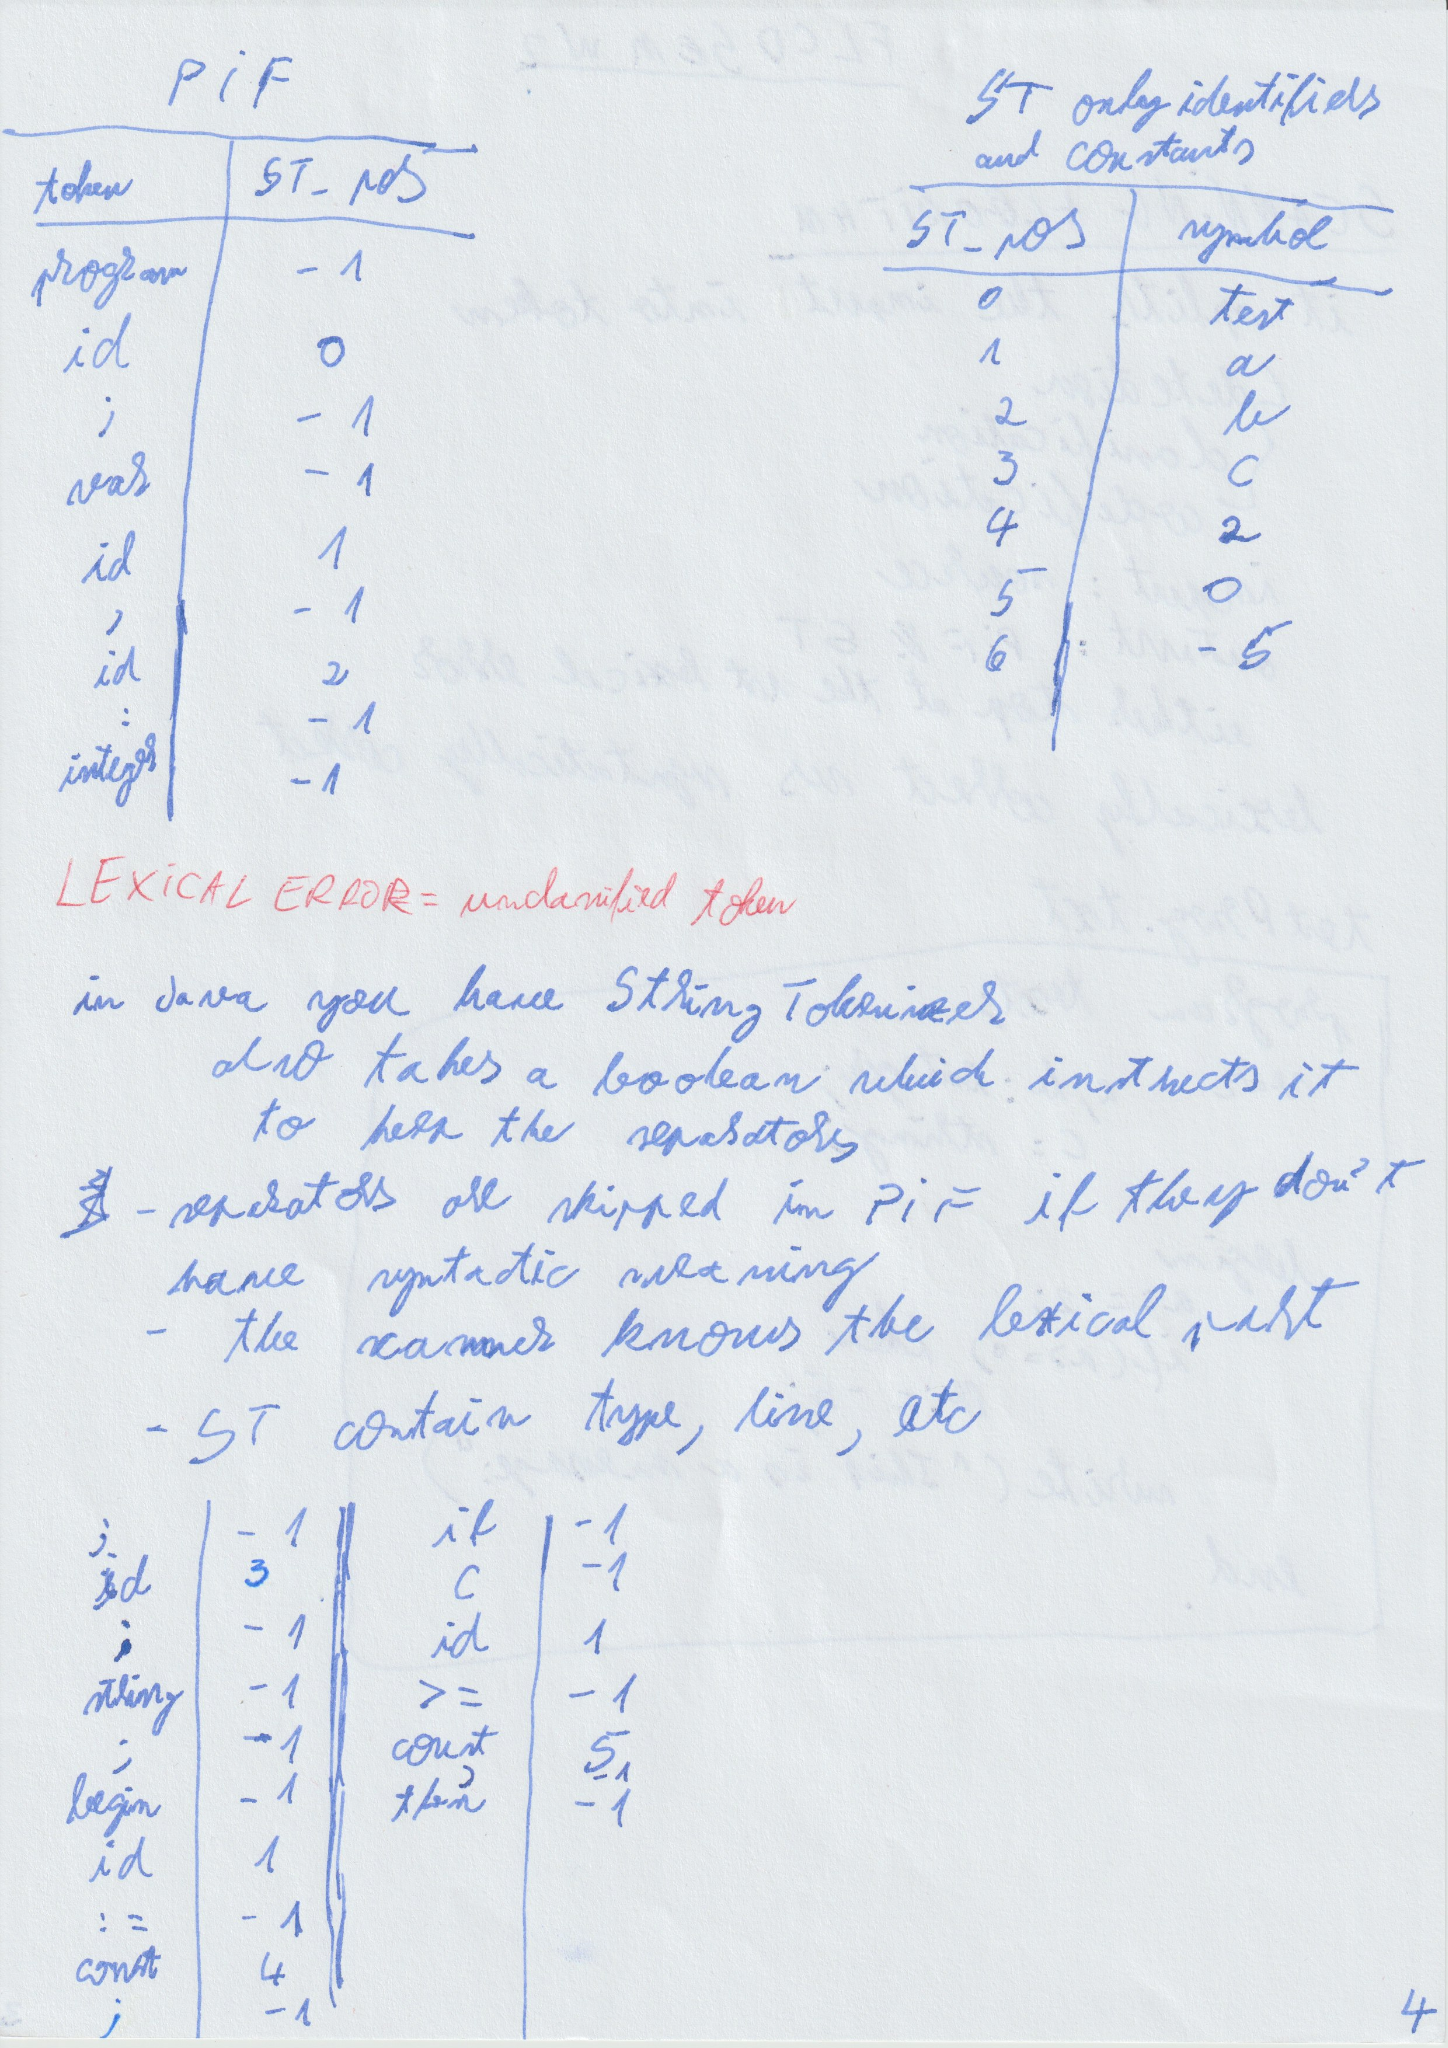 PiF
token ST_pos
program -1
id 0
; -1
var -1
id 1
, -1
id 2
: -1
integer -1
ST only identifiers
and constants
ST_pos symbol
0 test
1 a
2 b
3 c
4 2
5 0
6 -5
LEXICAL ERROR = unclassified token
in Java you have StringTokenizer
also takes a boolean which instructs it
to keep the separators
- separators are skipped in PiF if they don't
have syntactic meaning
- the scanner knows the lexical part
- ST contain type, line, etc
; -1
id 3
: -1
string -1
; -1
begin -1
id 1
:= -1
const 4
; -1
if -1
( -1
id 1
>= -1
const 5
) -1
then -1
4